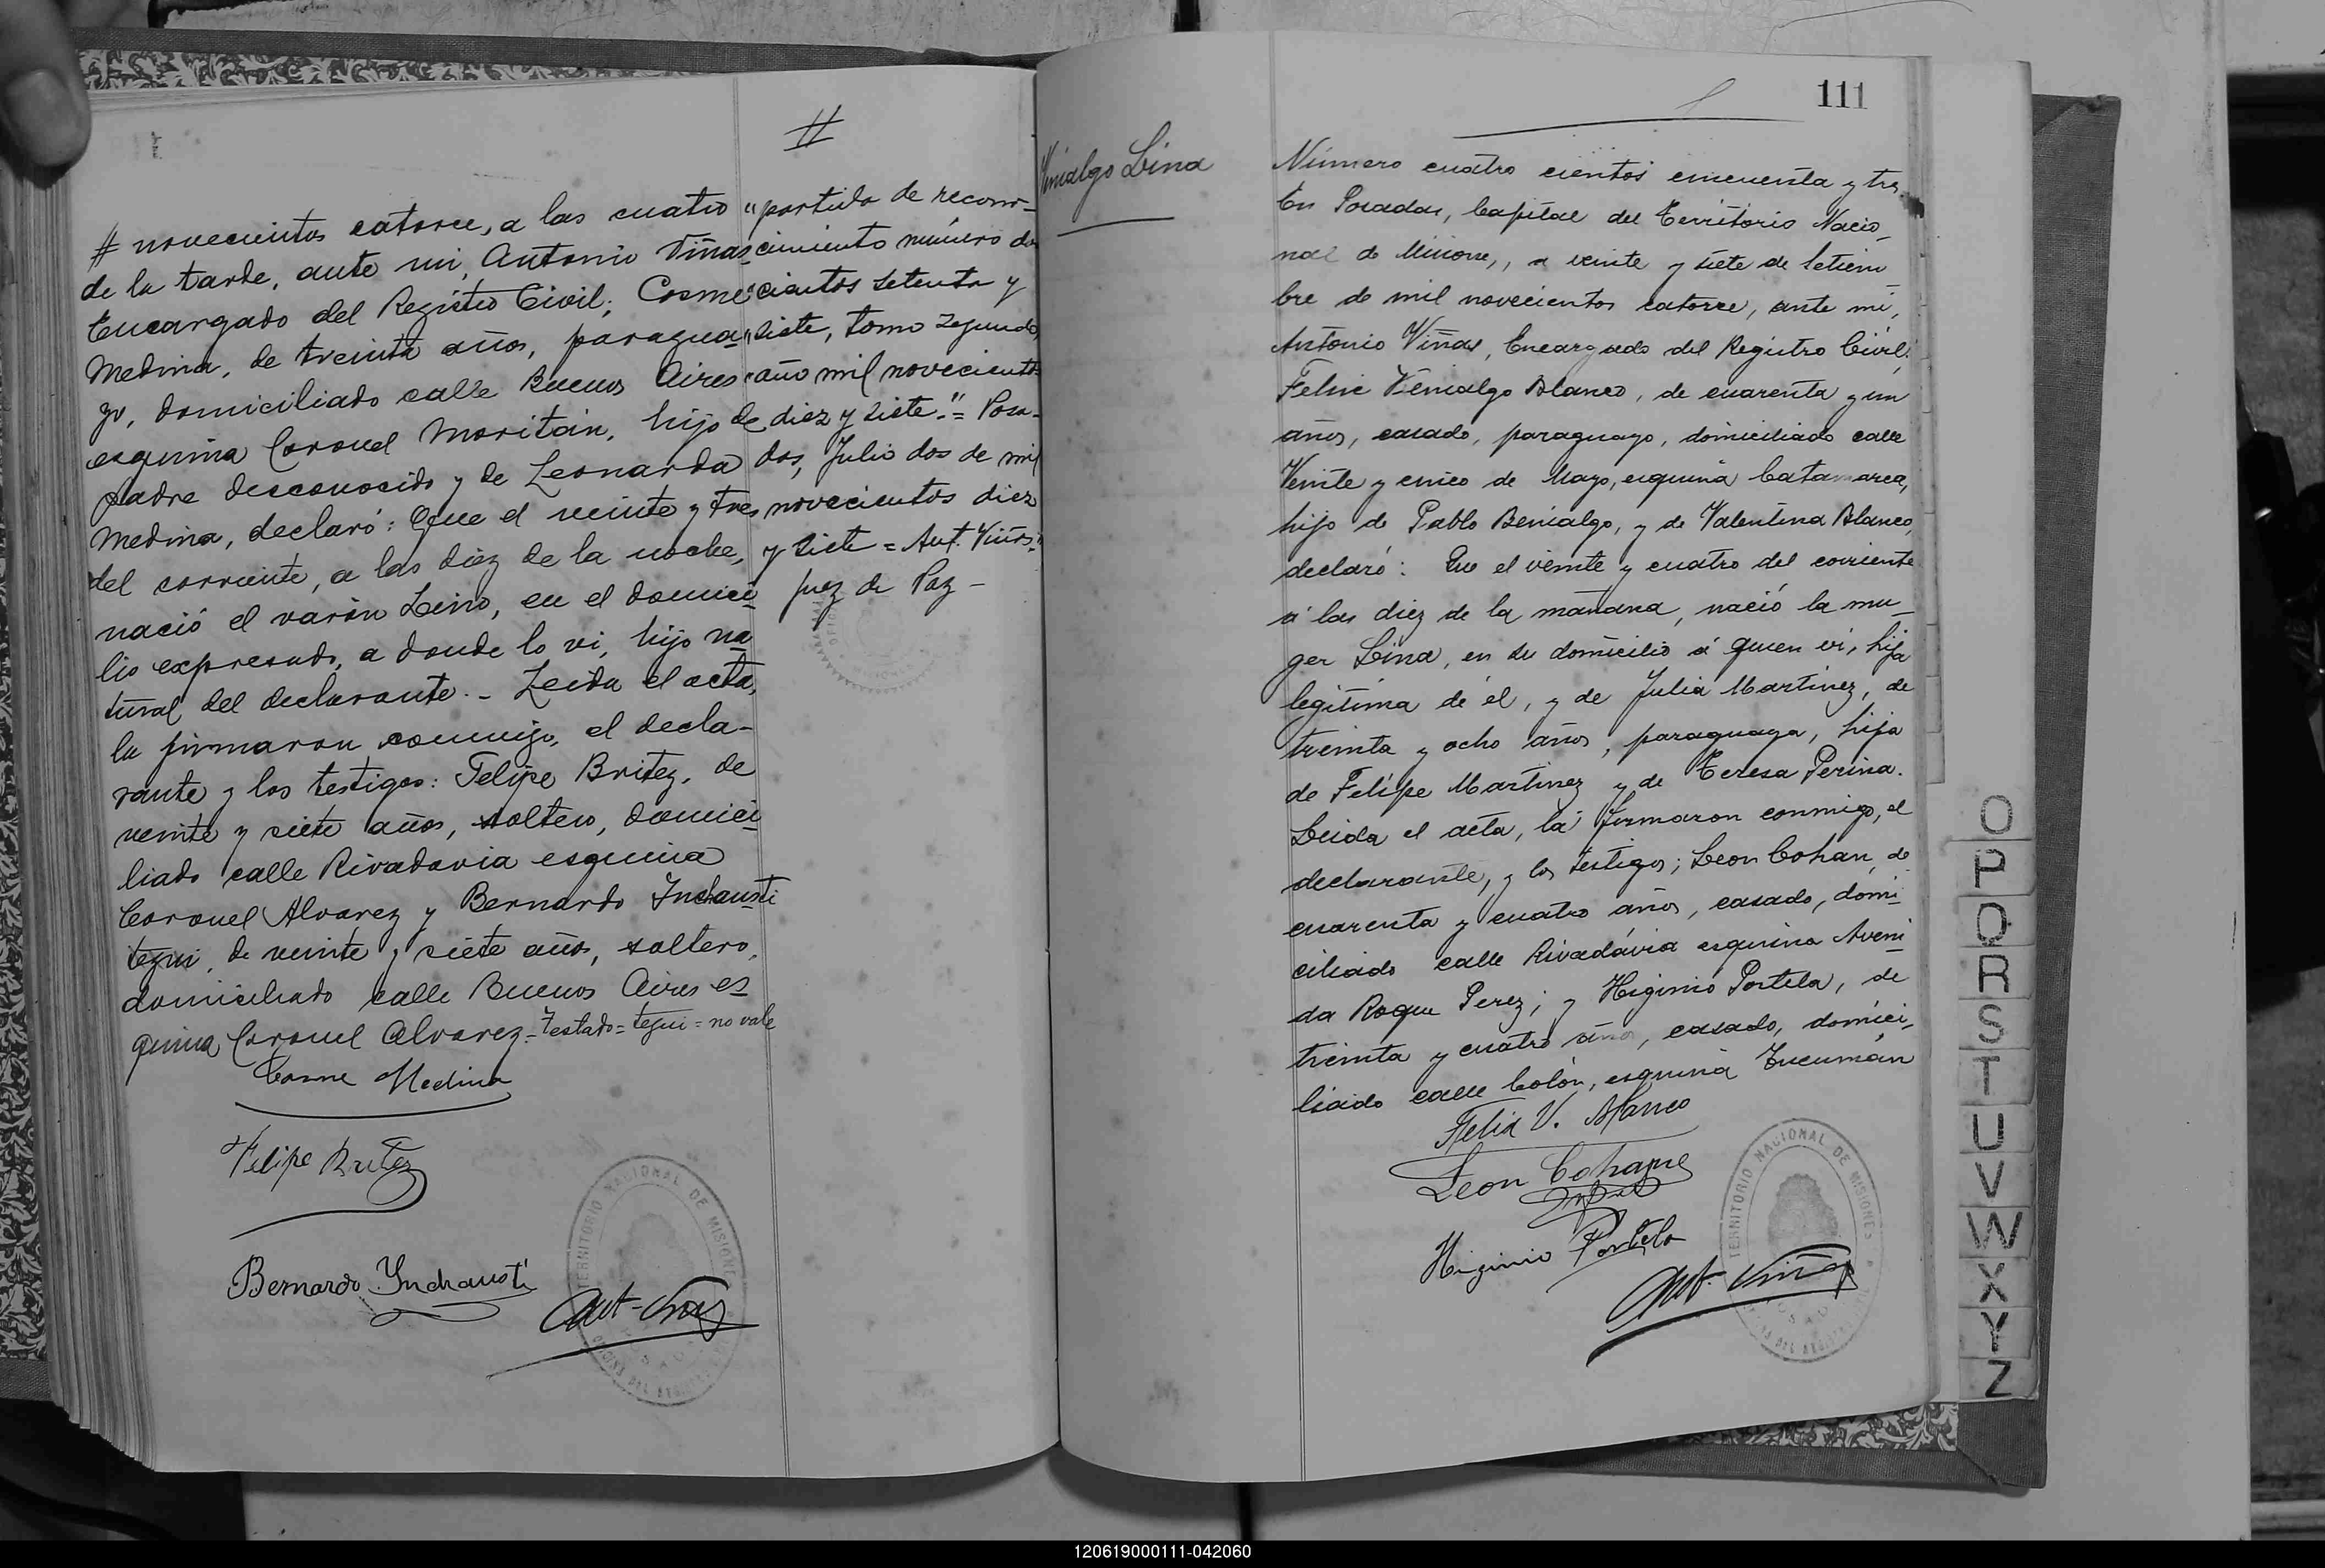 #
# novecientos catorce, a las cuatro
de la tarde, ante mi, Antonio Viñas
Encargado del Registro Civil; Cosme
Medina, de treinta años, paragua-
yo, domiciliado calle Buenos Aires
esquina Coronel Moritán, hijo de
padre desconocido y de Leonarda
Medina, declaró: Que el veinte y tres
del corriente, a las diez de la noche,
nació el varón Lino, en el domici-
lio expresado, a donde lo vi, hijo na-
tural del declarante. - Leida el acta,
la firmaron conmigo, el decla-
rante y los testigos: Felipe Britez, de
veinte y siete años, soltero, domici-
liado calle Rivadavia esquina
Coronel Alvarez y Bernardo Inchausti
tegui, de veinte y siete años, soltero,
domiciliado calle Buenos Aires es-
quina Coronel Alvarez.- Testado = tegui = no vale
Cosme Medina
Felipe Britez
Bernardo Ynchausti
Ant. Viñas
TERRITORIO NACIONAL DE MISIONES
"partida de recono-
cimiento número dos
"cientos setenta y
"siete, tomo segundo,
"año mil novecientos
diez y siete." = Posa-
das, Julio dos de mil
novecientos diez
y siete = Ant. Viñas.
Juez de Paz -
111
Venialgo Lina
Número cuatro cientos cincuenta y tres
En Posadas, Capital del Territorio Nacio-
nal de Misiones, a veinte y siete de Setiem-
bre de mil novecientos catorce, ante mi,
Antonio Viñas, Encargado del Registro Civil:
Felix Venialgo Blanco, de cuarenta y un
años, casado, paraguayo, domiciliado calle
Veinte y cinco de Mayo, esquina Catamarca,
hijo de Pablo Benialgo, y de Valentina Blanco,
declaró: Que el veinte y cuatro del corriente
á las diez de la mañana, nació la mu-
ger Lina, en su domicilio á quien vi, hija
legitima de él, y de Julia Martinez, de
treinta y ocho años, paraguaya, hija
de Felipe Martinez y de Teresa Perina.
Leida el acta, la firmaron conmigo, el
declarante, y los testigos; Leon Cohan, de
cuarenta y cuatro años, casado, domi-
ciliado calle Rivadávia esquina Aveni-
da Roque Perez; y Higinio Portela, de
treinta y cuatro años, casado, domici-
liado calle Colón, esquina Tucumán
Felix V. Blanco
Leon Cohan
Higinio Portela
Ant. Viñas
TERRITORIO NACIONAL DE MISIONES
O
P
Q
R
S
T
U
V
W
X
Y
Z
120619000111-042060